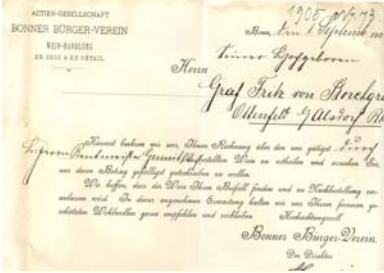 1905 Nr. 73
ACTIEN-GESELLSCHAFT
BONNER BÜRGER-VEREIN
WEIN-HANDLUNG
EN GROS & EN DÉTAIL
Bonn, den 1. September 190
Seiner Hochgeboren
Herrn
Graf Fritz von
Ottenfeld b/ Alsdorf
Hiermit beehren wir uns, Ihnen Rechnung über den uns gütigst durch
Herrn Rentmeister bestellten Wein zu ertheilen und ersuchen Sie,
uns deren Betrag gefälligst gutschreiben zu wollen.
Wir hoffen, dass der Wein Ihren Beifall finden und zu Nachbestellung ver-
anlassen wird. In dieser angenehmen Erwartung halten wir uns Ihrem ferneren ge-
schätzten Wohlwollen gerne empfohlen und verbleiben
Hochachtungsvoll
Bonner Bürger-Verein.
Der Direktor